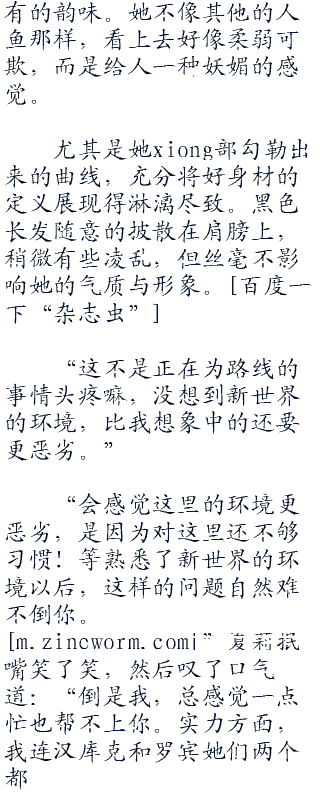 有的韵味。她不像其他的人
鱼那样，看上去好像柔弱可
欺，而是给人一种妖媚的感
觉。
尤其是她xiong部勾勒出
来的曲线，充分将好身材的
定义展现得淋漓尽致。黑色
长发随意的披散在肩膀上，
稍微有些凌乱，但丝毫不影
响她的气质与形象。[百度一
下“杂志虫”]
“这不是正在为路线的
事情头疼嘛，没想到新世界
的环境，比我想象中的还要
更恶劣。”
“会感觉这里的环境更
恶劣，是因为对这里还不够
习惯！等熟悉了新世界的环
境以后，这样的问题自然难
不倒你。
[m.zincworm.com|”夏莉抿
嘴笑了笑，然后叹了口气
道：“倒是我，总感觉一点
忙也帮不上你。实力方面，
我连汉库克和罗宾她们两个
都